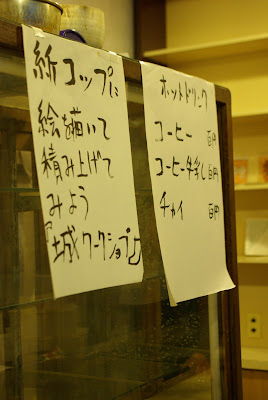 紙コップに
絵を描いて
積み上げて
みよう
城ワークショップ
ホットドリンク
コーヒー 百円
コーヒー牛乳 百円
チャイ 百円